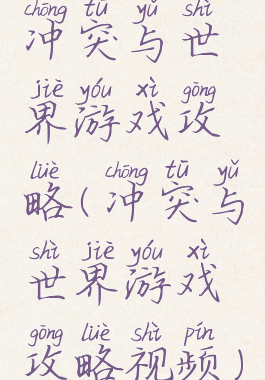 chōng tū yǔ shì
冲突与世
jiè yóu xì gōng
界游戏攻
lüè chōng tū yǔ
略(冲突与
shì jiè yóu xì
世界游戏
gōng lüè shì pín
攻略视频)